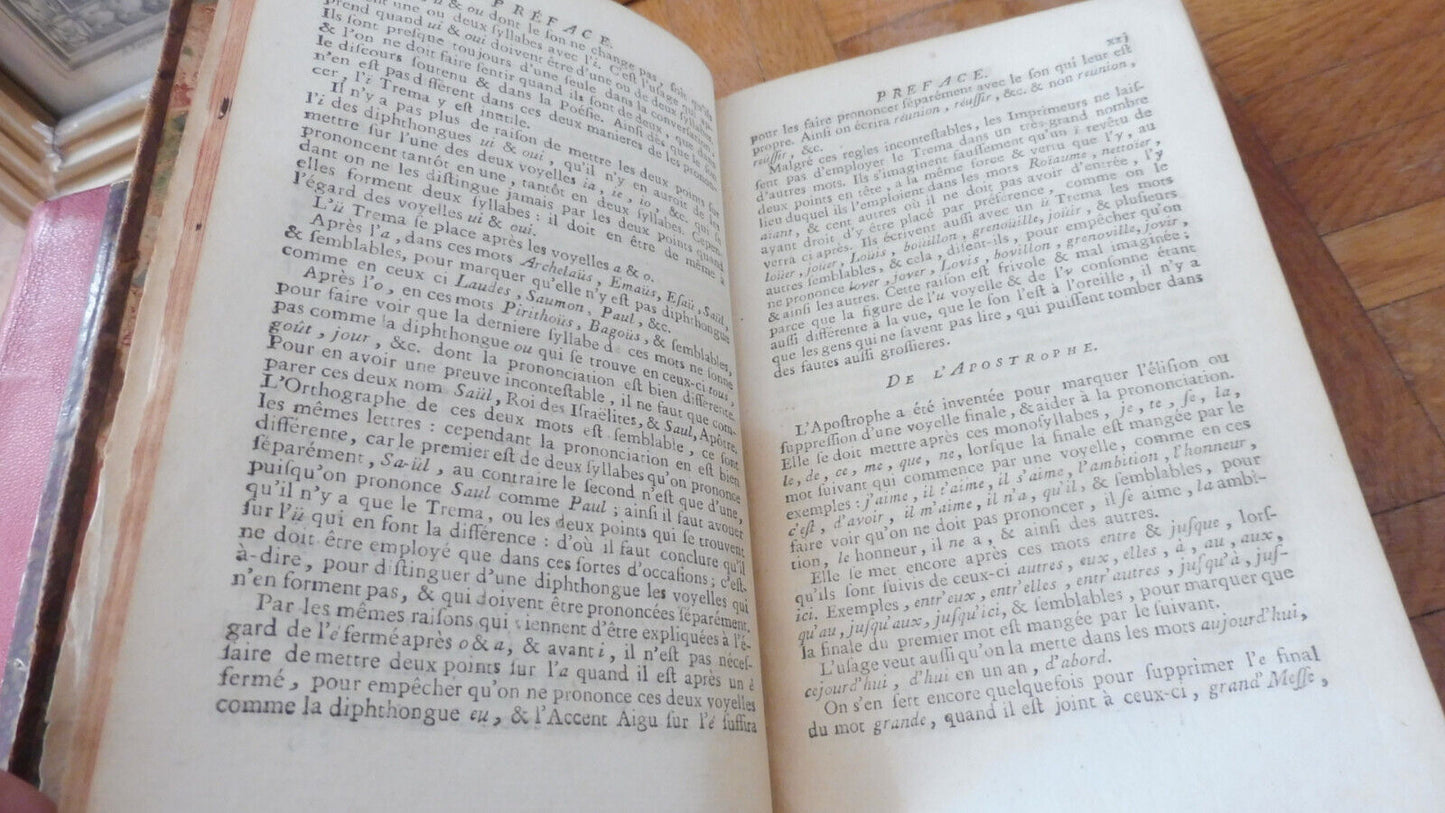 PRÉFACE.
& ou dont le ſon ne change pas, ſoit qu'ils
ent une ou deux ſyllabes avec l'i. C'eſt l'uſage qui ap-
prend quand ui & oui doivent être d'une ou de deux ſyllabes:
preſque toujours d'une ſeule dans la converſation,
& l'on ne doit faire ſentir quand ils ſont de deux, que dans
le diſcours ſoutenu & dans la Poéſie. Ainſi dès que le ſon
n'en eſt pas différent dans ces deux manieres de les pronon-
cer, l'i Trema y eſt inutile.
Il n'y a pas plus de raiſon de mettre les deux points ſur
l'i des diphthongues ui & oui, qu'il n'y en auroit de les
mettre ſur l'une des deux voyelles ia, ie, io, &c. qui ſe
prononcent tantôt en une, tantôt en deux ſyllabes. Cepen-
dant on ne les diſtingue jamais par les deux points quand
elles forment deux ſyllabes: il doit en être de même à
l'égard des voyelles ui & oui.
L'ü Trema ſe place après les voyelles a & o.
Après l'a, dans ces mots Archelaüs, Emaüs, Eſaü, Saül,
& ſemblables, pour marquer qu'elle n'y eſt pas diphthongue
comme en ceux ci Laudes, Saumon, Paul, &c.
Après l'o, en ces mots Pirithoüs, Bagoüs, & ſemblables,
pour faire voir que la derniere ſyllabe d ces mots ne ſonne
pas comme la diphthongue ou qui ſe trouve en ceux-ci tous,
goût, jour, &c. dont la prononciation eſt bien différence.
Pour en avoir une preuve inconteſtable, il ne faut que com-
parer ces deux nom Saül, Roi des Iſraëlites, & Saul, Apôtre.
L'Orthographe de ces deux mots eſt ſemblable, ce ſont
les mêmes lettres: cependant la prononciation en eſt bien
différente, car le premier eſt de deux ſyllabes qu'on prononce
ſéparément, Sa-ül, au contraire le ſecond n'eſt que d'une,
puiſqu'on prononce Saul comme Paul; ainſi il faut avouer
qu'il n'y a que le Trema, ou les deux points qui ſe trouvent
ſur l'ü qui en font la différence: d'où il faut conclure qu'il
ne doit être employé que dans ces ſortes d'occaſions; c'eſt-
à-dire, pour diſtinguer d'une diphthongue les voyelles qui
n'en forment pas, & qui doivent être prononcées ſéparément.
Par les mêmes raiſons qui viennent d'être expliquées à l'é-
gard de l'é fermé après o & a, & avant i, il n'eſt pas néceſ-
ſaire de mettre deux points ſur l'a quand il eſt après un é
fermé, pour empêcher qu'on ne prononce ces deux voyelles
comme la diphthongue eu, & l'Accent Aigu ſur l'é ſuffira
PREFACE. xxj
pour les faire prononcer ſéparément avec le ſon qui leur eſt
propre. Ainſi on écrira réunion, réuſſir, &c. & non reünion,
reüſſir, &c.
Malgré ces regles inconteſtables, les Imprimeurs ne laiſ-
ſent pas d'employer le Trema dans un très-grand nombre
d'autres mots. Ils s'imaginent fauſſement qu'un ï revêtu de
deux points en tête, a la même force & vertu que l'y, au
lieu duquel ils l'emploient dans les mots Roïaume, nettoïer,
aïant, & cent autres où il ne doit pas avoir d'entrée, l'y
ayant droit d'y être placé par préférence, comme on le
verra ci après. Ils écrivent auſſi avec un ü Trema les mots
loüer, joüer, Loüis, boüillon, grenoüille, joüir, & pluſieurs
autres ſemblables, & cela, diſent-ils, pour empêcher qu'on
ne prononce lover, jover, Lovis, bovillon, grenoville, jovir,
& ainſi les autres. Cette raiſon eſt frivole & mal imaginée:
parce que la figure de l'u voyelle & de l'v conſonne étant
auſſi différente à la vue, que le ſon l'eſt à l'oreille, il n'y a
que les gens qui ne ſavent pas lire, qui puiſſent tomber dans
des fautes auſſi groſſieres.
DE L'APOSTROPHE.
L'Apoſtrophe a été inventée pour marquer l'éliſion ou
ſuppreſſion d'une voyelle finale, & aider à la prononciation.
Elle ſe doit mettre après ces monoſyllabes, je, te, ſe, la,
le, de, ce, me, que, ne, lorſque la finale eſt mangée par le
mot ſuivant qui commence par une voyelle, comme en ces
exemples: j'aime, il t'aime, il s'aime, l'ambition, l'honneur,
c'eſt, d'avoir, il m'aime, il n'a, qu'il, & ſemblables, pour
faire voir qu'on ne doit pas prononcer, il ſe aime, la ambi-
tion, le honneur, il ne a, & ainſi des autres.
Elle ſe met encore après ces mots entre & juſque, lorſ-
qu'ils ſont ſuivis de ceux-ci autres, eux, elles, à, au, aux,
ici. Exemples, entr'eux, entr'elles, entr'autres, juſqu'à, juſ-
qu'au, juſqu'aux, juſqu'ici, & ſemblables, pour marquer que
la finale du premier mot eſt mangée par le ſuivant.
L'uſage veut auſſi qu'on la mette dans les mots aujourd'hui,
cejourd'hui, d'hui en un an, d'abord.
On s'en ſert encore quelquefois pour ſupprimer l'e final
du mot grande, quand il eſt joint à ceux-ci, grand'Meſſe,